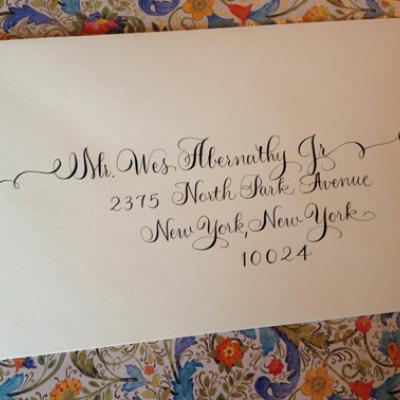 Mr. Wes Abernathy Jr
2375 North Park Avenue
New York, New York
10024